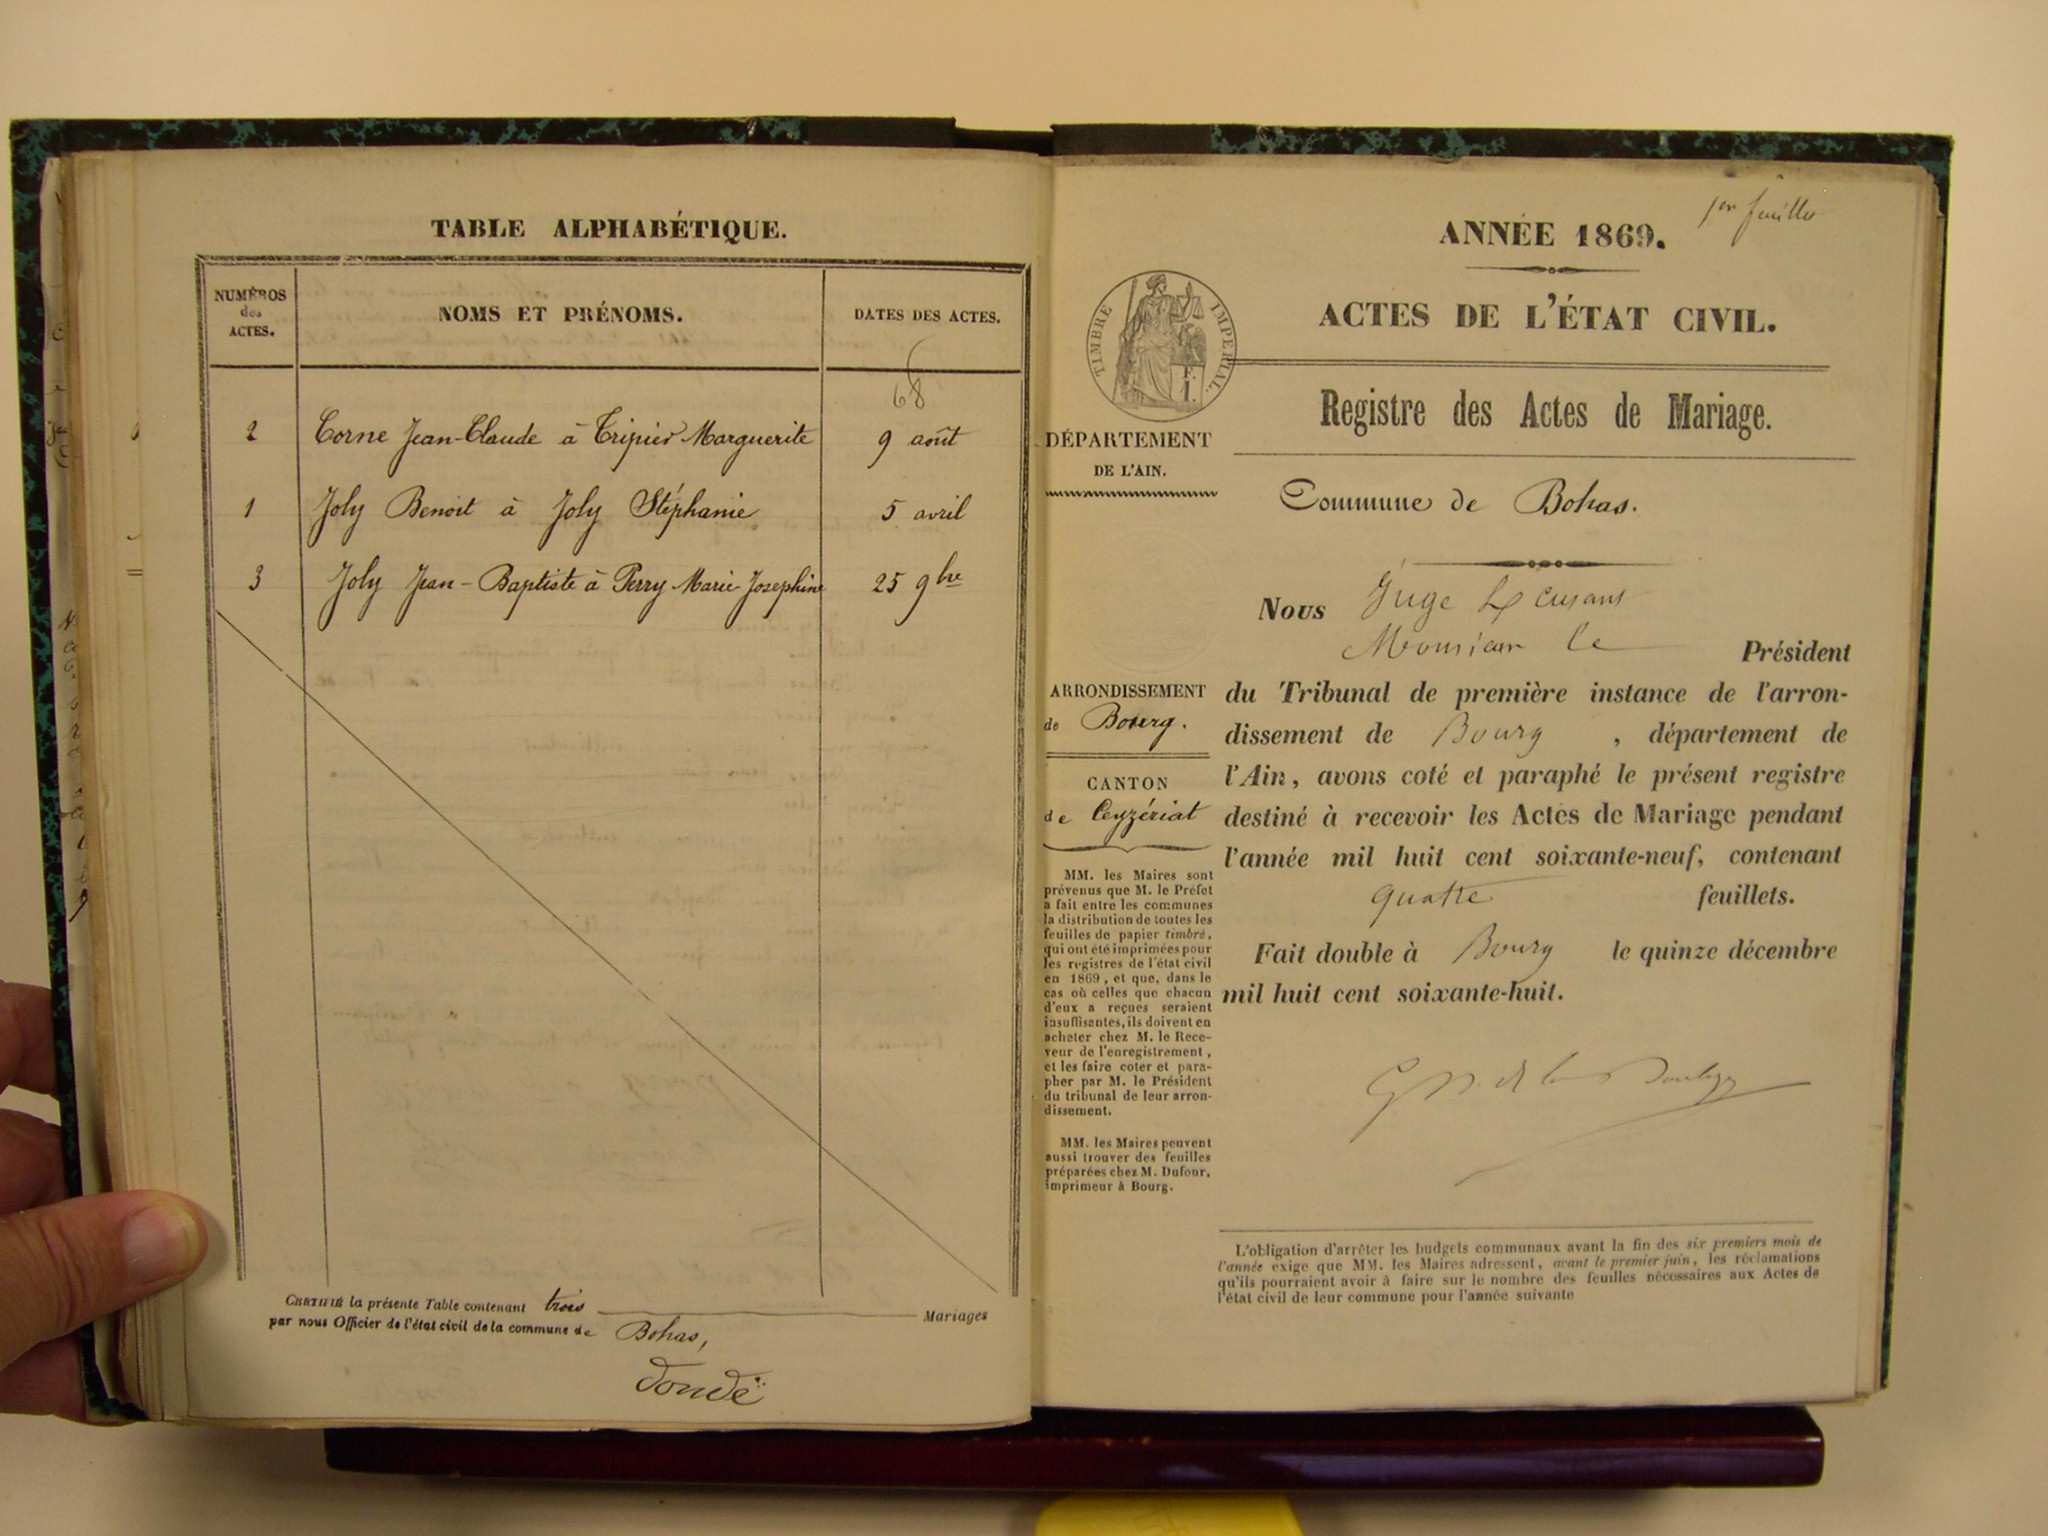 TABLE ALPHABÉTIQUE.
NUMÉROS
des
ACTES.
NOMS ET PRÉNOMS.
DATES DES ACTES.
68
2 Corne Jean-Claude à Tripier Marguerite 9 août
1 Joly Benoit à Joly Stéphanie 5 avril
3 Joly Jean-Baptiste à Perry Marie Josephine 25 9bre
CERTIFIÉ la présente Table contenant trois Mariages
par nous Officier de l'état civil de la commune de Bohas,
Dondé
1er feuillet
ANNÉE 1869.
ACTES DE L'ÉTAT CIVIL.
TIMBRE IMPERIAL.
Registre des Actes de Mariage.
DÉPARTEMENT
DE L'AIN.
Commune de Bohas.
Nous Juge
Monsieur le Président
ARRONDISSEMENT
de Bourg.
CANTON
de Ceyzériat
du Tribunal de première instance de l'arron-
dissement de Bourg, département de
l'Ain, avons coté et paraphé le présent registre
destiné à recevoir les Actes de Mariage pendant
l'année mil huit cent soixante-neuf, contenant
quatre feuillets.
Fait double à Bourg le quinze décembre
mil huit cent soixante-huit.
MM. les Maires sont
prévenus que M. le Préfet
a fait entre les communes
la distribution de toutes les
feuilles de papier timbré,
qui ont été imprimées pour
les registres de l'état civil
en 1869, et que, dans le
cas où celles que chacun
d'eux a reçues seraient
insuffisantes, ils doivent en
acheter chez M. le Rece-
veur de l'enregistrement,
et les faire coter et para-
pher par M. le Président
du tribunal de leur arron-
dissement.
MM. les Maires peuvent
aussi trouver des feuilles
préparées chez M. Dufour,
imprimeur à Bourg.
L'obligation d'arrêter les budgets communaux avant la fin des six premiers mois de
l'année exige que MM. les Maires adressent, avant le premier juin, les réclamations
qu'ils pourraient avoir à faire sur le nombre des feuilles nécessaires aux Actes de
l'état civil de leur commune pour l'année suivante